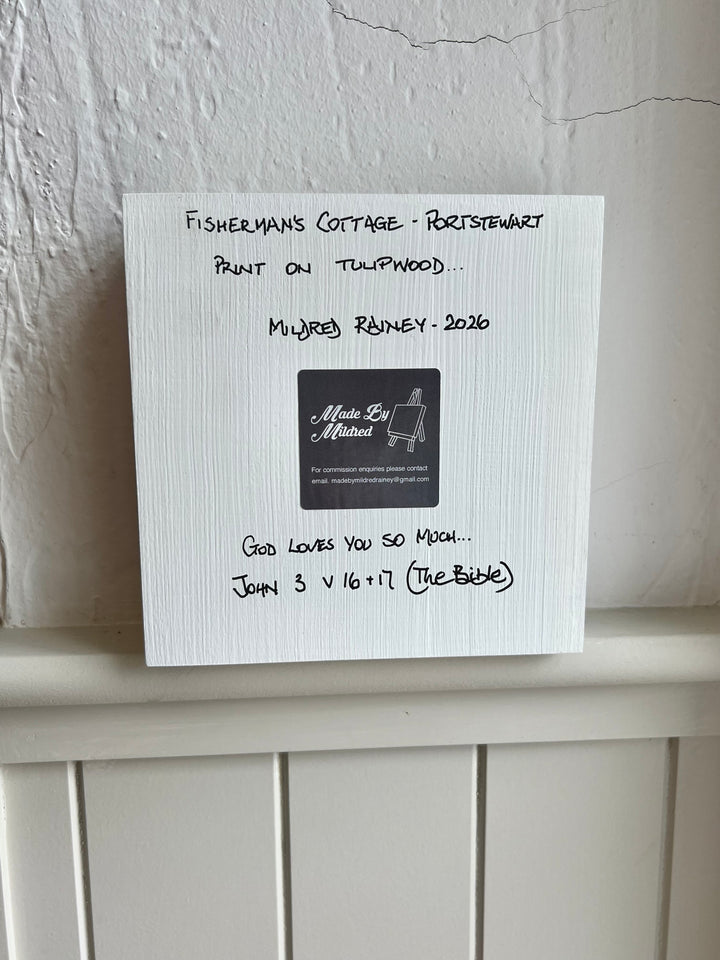 FISHERMAN'S COTTAGE - PORTSTEWART
PRINT ON TULIPWOOD...
MILDRED RAINEY - 2026
Made By
Mildred
For commission enquiries please contact
email. madebymildredrainey@gmail.com
GOD LOVES YOU SO MUCH...
JOHN 3 V 16 + 17 (The Bible)